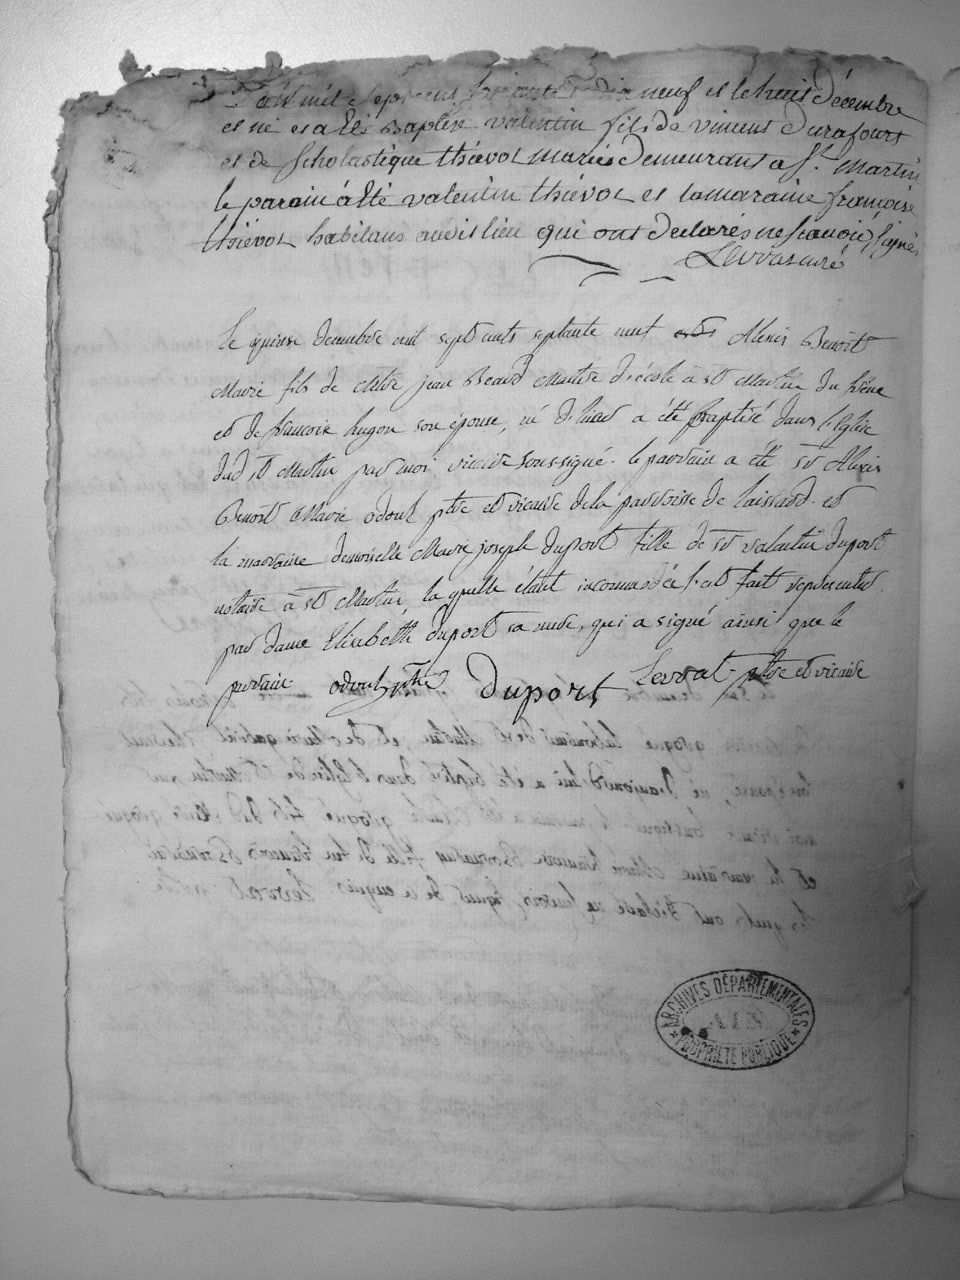 L'an mil sept cent soixante dix neuf et le huit décembre
est né et a été Baptisé valentin fils de vincent Durafourt
et de Scholastique thievot mariés demeurant a St. Martin
le parain à été valentin thiévot et la maraine françoise
thiévot habitans audit lieu qui ont declarés ne scavoir signé
Levrat curé
Le quinse decembre mil sept cents septante neuf Alexis Benoit
Marie fils de jean Maitre d'école à st Martin du frêne
et de francoise hugon son épouse, né d'hier a été baptisé dans l'Eglise
dud st Martin par moi vicaire soussigné. le parrain a été sr Alexis
Benoit Marie odoul ptre et vicaire de la parroisse de et
la marraine demoiselle Marie joseph duport fille de sr valentin duport
notaire à st Martin, la quelle étant incommodée s'est fait représenter
par dame Elisabeth duport sa mere, qui a signé ainsi que le
parrain. odoul ptre Duport Levrat ptre et vicaire
ARCHIVES DÉPARTEMENTALES
AIN
PROPRIÉTÉ PUBLIQUE